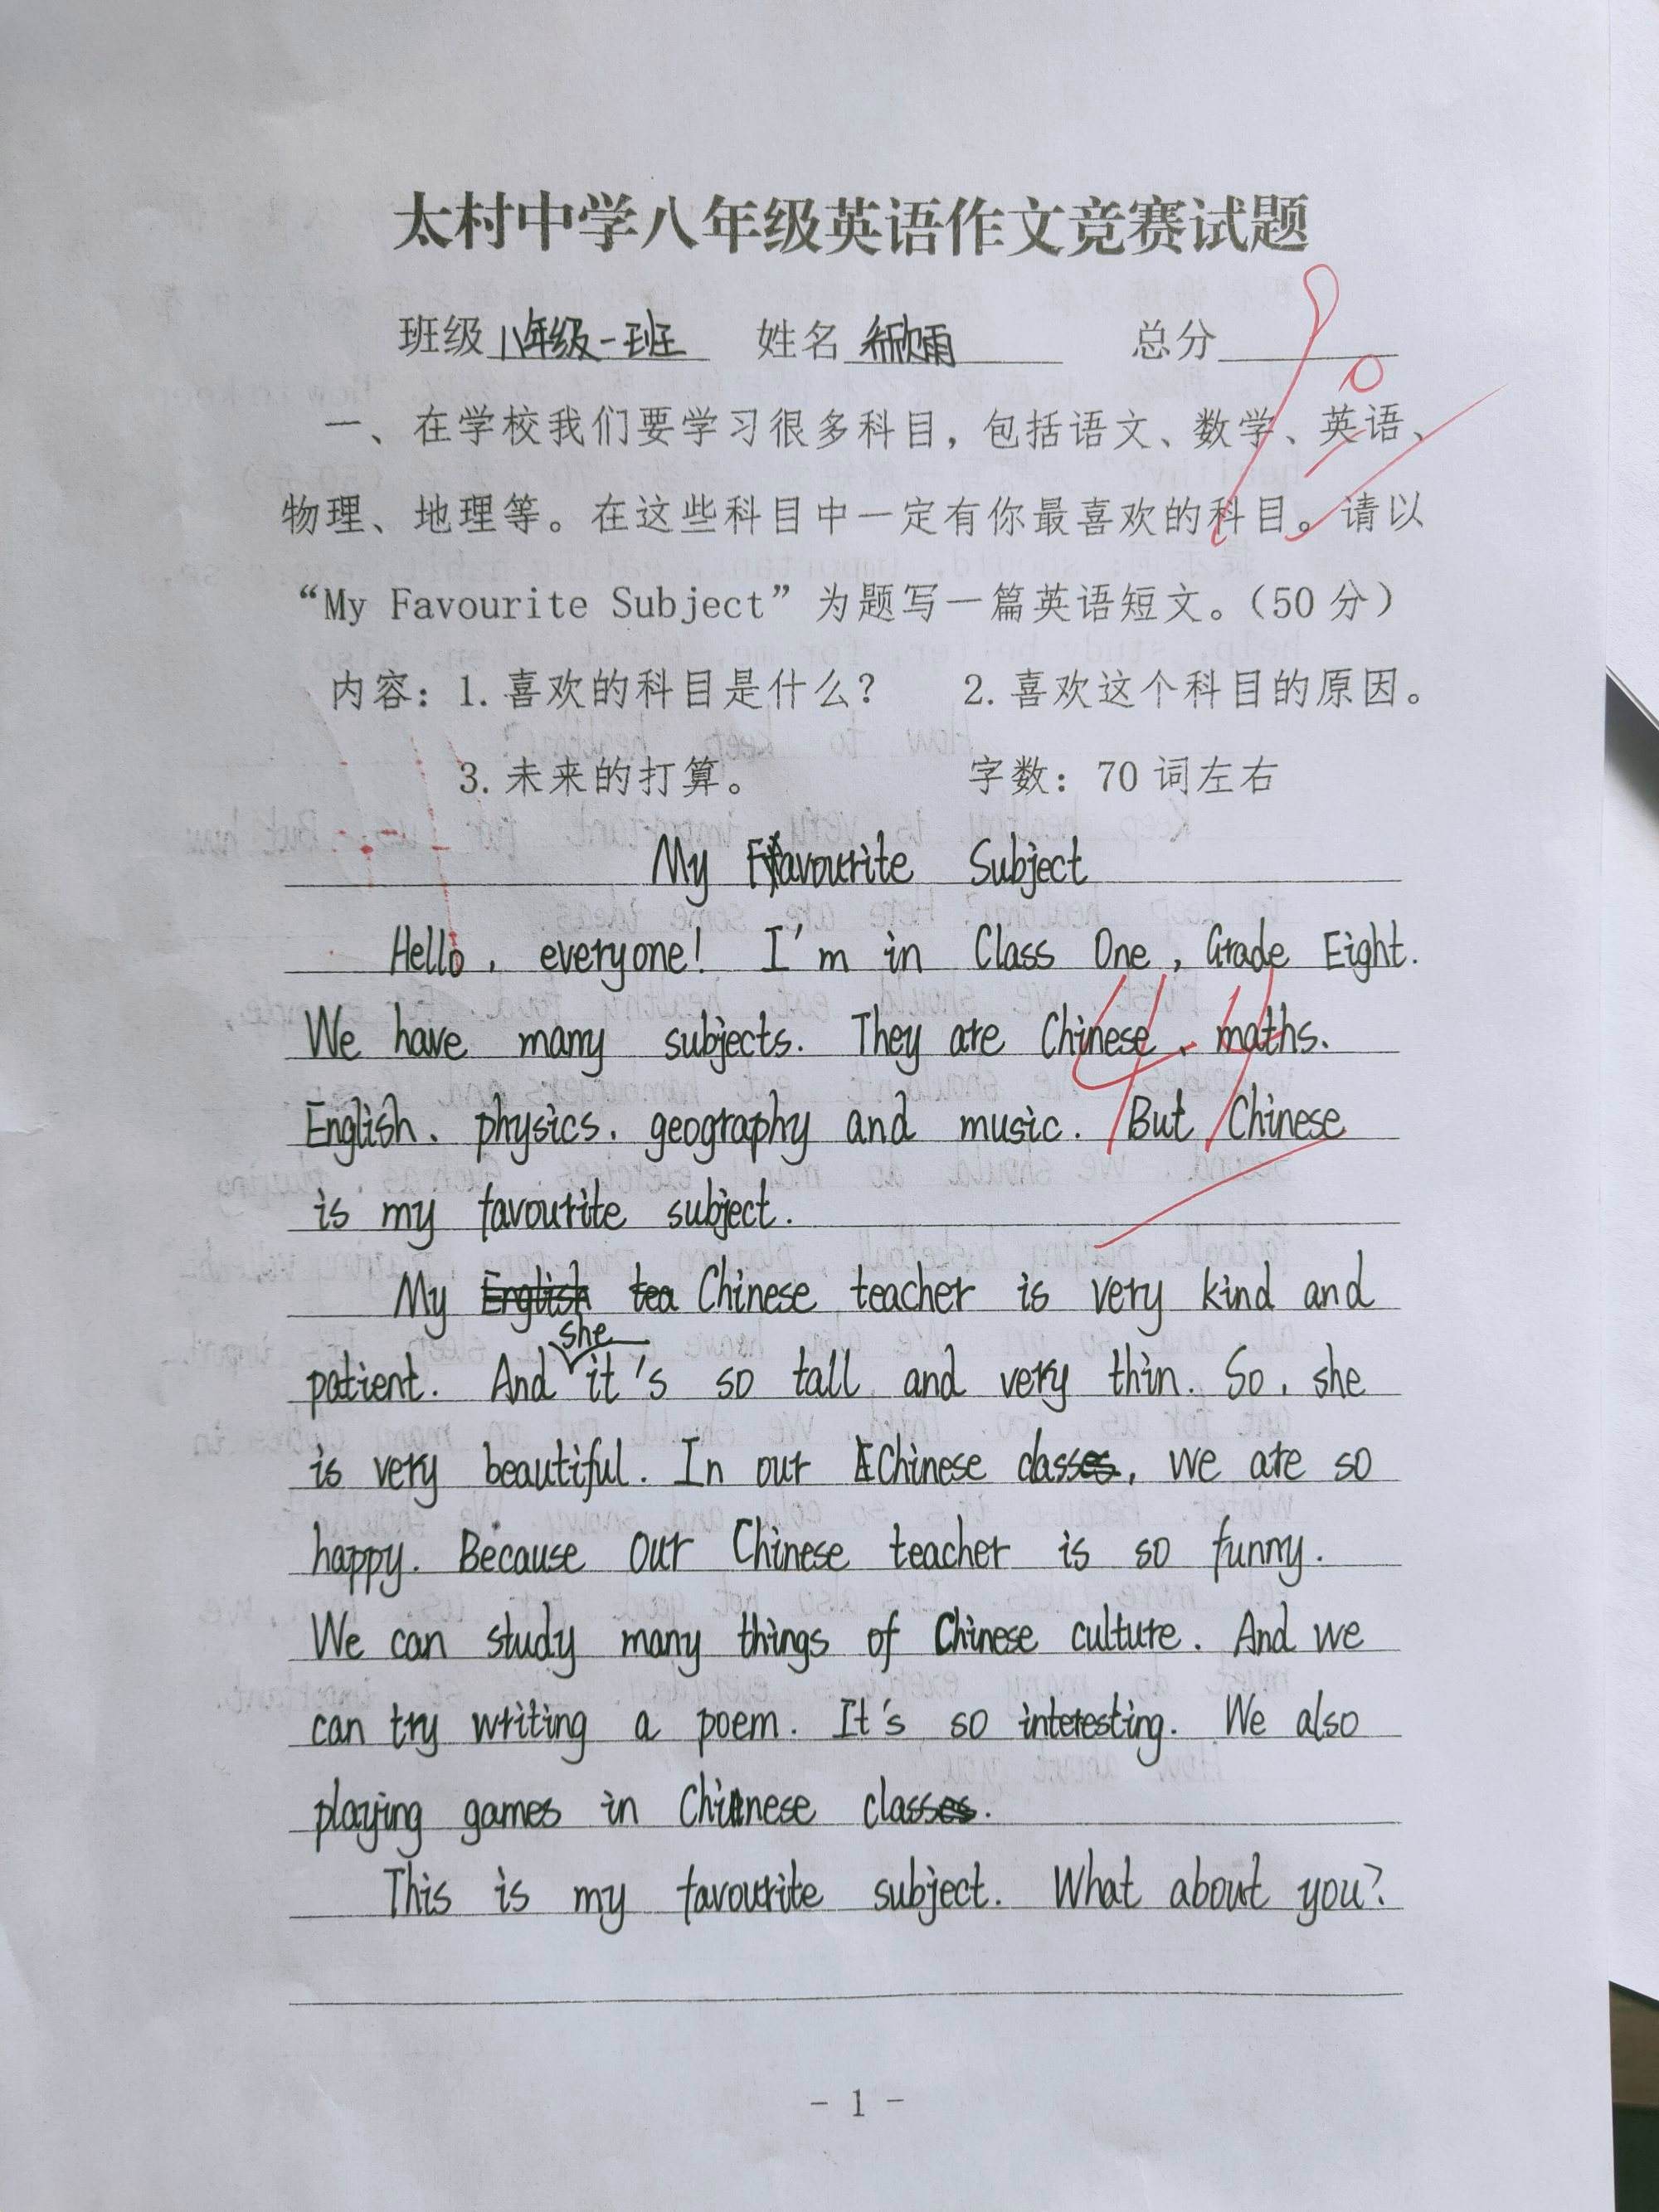 太村中学八年级英语作文竞赛试题
班级 八年级一班 姓名 欣雨 总分
90
一、在学校我们要学习很多科目，包括语文、数学、英语、
物理、地理等。在这些科目中一定有你最喜欢的科目。请以
“My Favourite Subject”为题写一篇英语短文。（50 分）
内容：1. 喜欢的科目是什么？ 2. 喜欢这个科目的原因。
3. 未来的打算。 字数：70 词左右
My Favourite Subject
Hello, everyone! I'm in Class One, Grade Eight.
We have many subjects. They are Chinese、maths、
English、physics、geography and music. But Chinese
is my favourite subject.
My English tea Chinese teacher is very kind and
she
patient. And it's so tall and very thin. So, she
is very beautiful. In our Chinese classes, we are so
happy. Because our Chinese teacher is so funny.
We can study many things of Chinese culture. And we
can try writing a poem. It's so interesting. We also
playing games in Chinese classes.
This is my favourite subject. What about you?
- 1 -